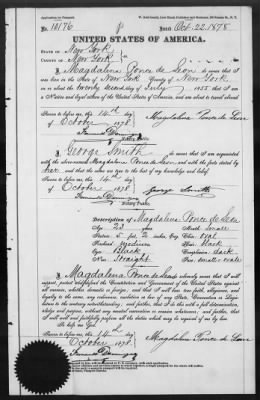 No. 10176 Issued Oct. 22. 1878
UNITED STATES OF AMERICA.
STATE OF New York
COUNTY OF New York
I, Magdalena Ponce de Leon do swear that I was
born in the State of New York County of New York
on or about the twenty second day of July 1855 that I am
a Native and loyal citizen of the United States of America, and am about to travel abroad
Sworn to before me, this 14th
day of October 1878 Magdalena Ponce de Leon
Notary Public
I, George Smith do swear that I am acquainted
with the above-named Magdalena Ponce de Leon and with the facts stated by
her and that the same are true to the best of my knowledge and belief.
Sworn to before me, this 14th
day of October 1878 George Smith
Notary Public
Description of Magdalena Ponce de Leon
Age: 23 years Mouth: small
Stature: 5 feet 2 inches, Eng. Chin: oval
Forehead: medium Hair: black
Eyes: Black Complexion: dark
Nose: straight Face: small & oval
I, Magdalena Ponce de Leon do solemnly swear that I will
support, protect and defend the Constitution and Government of the United States against all
enemies, whether domestic or foreign; and that I will bear true faith, allegiance, and
loyalty to the same, any ordinance, resolution or law of any State, Convention or Legis-
lature to the contrary notwithstanding; and further, that I do this with a full determination,
pledge and purpose, without any mental reservation or evasion whatsoever; and further, that
I will well and faithfully perform all the duties which may be required of me by law.
So help me God.
Sworn to before me, this 14th
day of October 1878 Magdalena Ponce de Leon